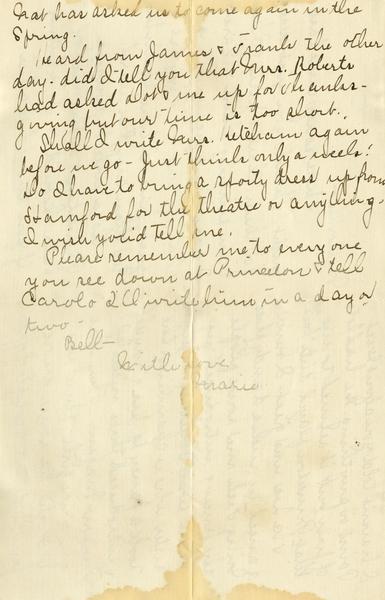 Nat has asked us to come again in the
Spring.
Heard from James & Frank the other
day. did I tell you that Mrs. Roberts
had asked Dot & me up for Thanks-
giving but our time is too short.
Shall I write Mrs. Ketcham again
before we go - Just think only a week!
Do I have to bring a sporty dress up from
Stamford for the theatre or anything -
I wish you'd tell me.
Please remember me to every one
you see down at Princeton & tell
Carolo I'll write him in a day or
two -
Bell -
With love
Marie